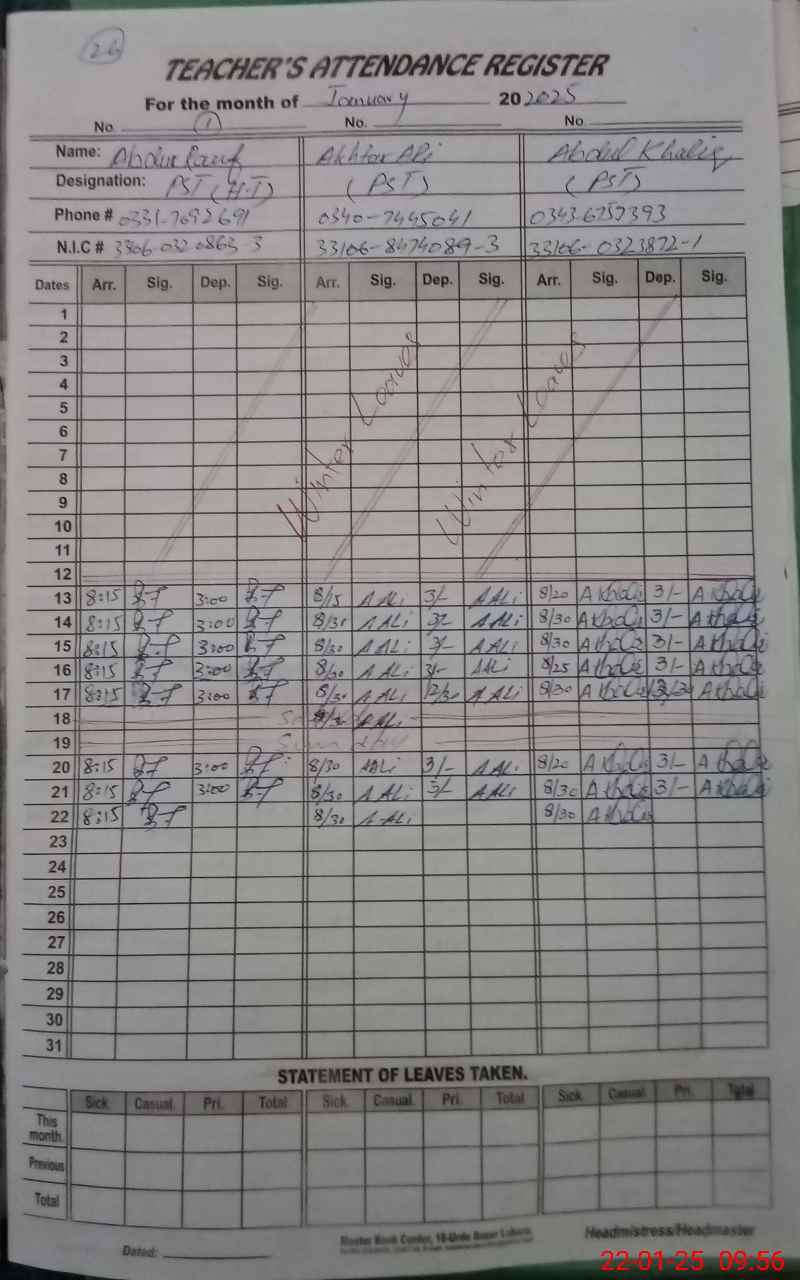 26
TEACHER'S ATTENDANCE REGISTER
For the month of January 20 2025
No. 1 No. No.
Name: Abdur Rauf Akhtar Ali Abdul Khaliq
Designation: PST (H.T) (PST) (PST)
Phone # 0331-7692691 0340-7445041 0343-6757393
N.I.C # 33106-0320863-3 33106-8474089-3 33106-0323872-1
Dates Arr. Sig. Dep. Sig. Arr. Sig. Dep. Sig. Arr. Sig. Dep. Sig.
1
2
3
4
5
6
7
8
9
10
11
12
Winter Leaves Winter Leaves
13 8:15 3:00 8/15 A ALi 3/- A ALi 8/20 A Khaliq 3/- A Khaliq
14 8:15 3:00 8/30 A ALi 3/- A ALi 8/30 A Khaliq 3/- A Khaliq
15 8:15 3:00 8/30 A ALi 3/- A ALi 8/30 A Khaliq 3/- A Khaliq
16 8:15 3:00 8/30 A ALi 3/- A ALi 8/25 A Khaliq 3/- A Khaliq
17 8:15 3:00 8/30 A ALi 12/30 A ALi 8/30 A Khaliq A Khaliq
18 8/30 A ALi
19 Sunday
20 8:15 3:00 8/30 A ALi 3/- A ALi 8/20 A Khaliq 3/- A Khaliq
21 8:15 3:00 8/30 A ALi 3/- A ALi 8/30 A Khaliq 3/- A Khaliq
22 8:15 8/30 A ALi 8/30 A Khaliq
23
24
25
26
27
28
29
30
31
STATEMENT OF LEAVES TAKEN.
Sick. Casual. Pri. Total Sick. Casual. Pri. Total Sick. Casual. Pri. Total
This month.
Previous
Total
Dated: Master Book Center, 18-Urdu Bazar Lahore. Headmistress/Headmaster
22-01-25 09:56